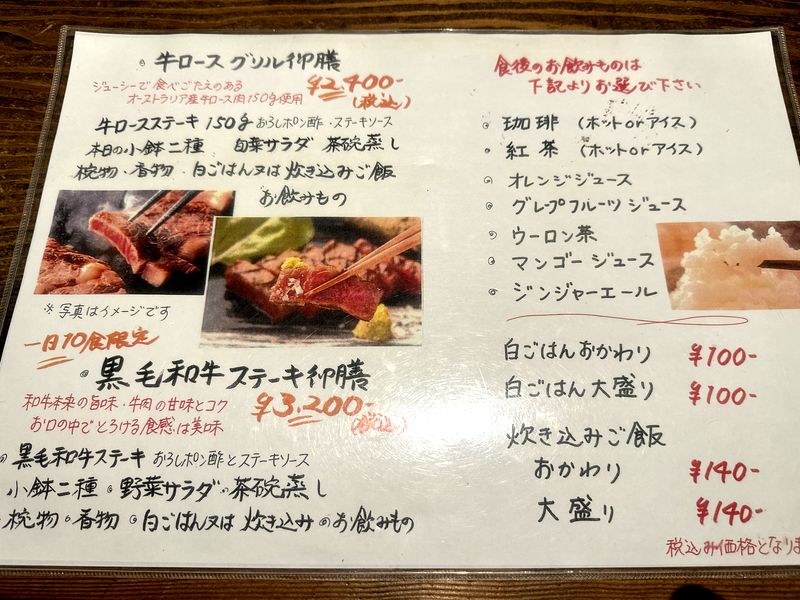 牛ロースグリル御膳
ジューシーで食べごたえのある
オーストラリア産牛ロース肉150g使用
¥2,400-
(税込)
牛ロースステーキ150g おろしポン酢・ステーキソース
本日の小鉢二種 旬菜サラダ 茶碗蒸し
椀物・香物・白ごはん又は炊き込みご飯
お飲みもの
※写真はイメージです
一日10食限定
黒毛和牛ステーキ御膳
和牛本来の旨味・牛肉の甘味とコク
お口の中でとろける食感は美味
¥3,200-
(税込)
黒毛和牛ステーキ おろしポン酢とステーキソース
小鉢二種 野菜サラダ 茶碗蒸し
椀物 香物 白ごはん又は炊き込み お飲みもの
食後のお飲みものは
下記よりお選び下さい
珈琲 (ホットorアイス)
紅茶 (ホットorアイス)
オレンジジュース
グレープフルーツジュース
ウーロン茶
マンゴージュース
ジンジャーエール
白ごはんおかわり ¥100-
白ごはん大盛り ¥100-
炊き込みご飯
おかわり ¥140-
大盛り ¥140-
税込み価格となりま